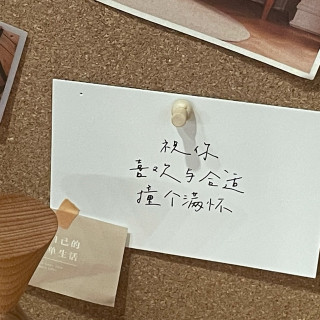 祝你
喜欢与合适
撞个满怀
自己的
生活